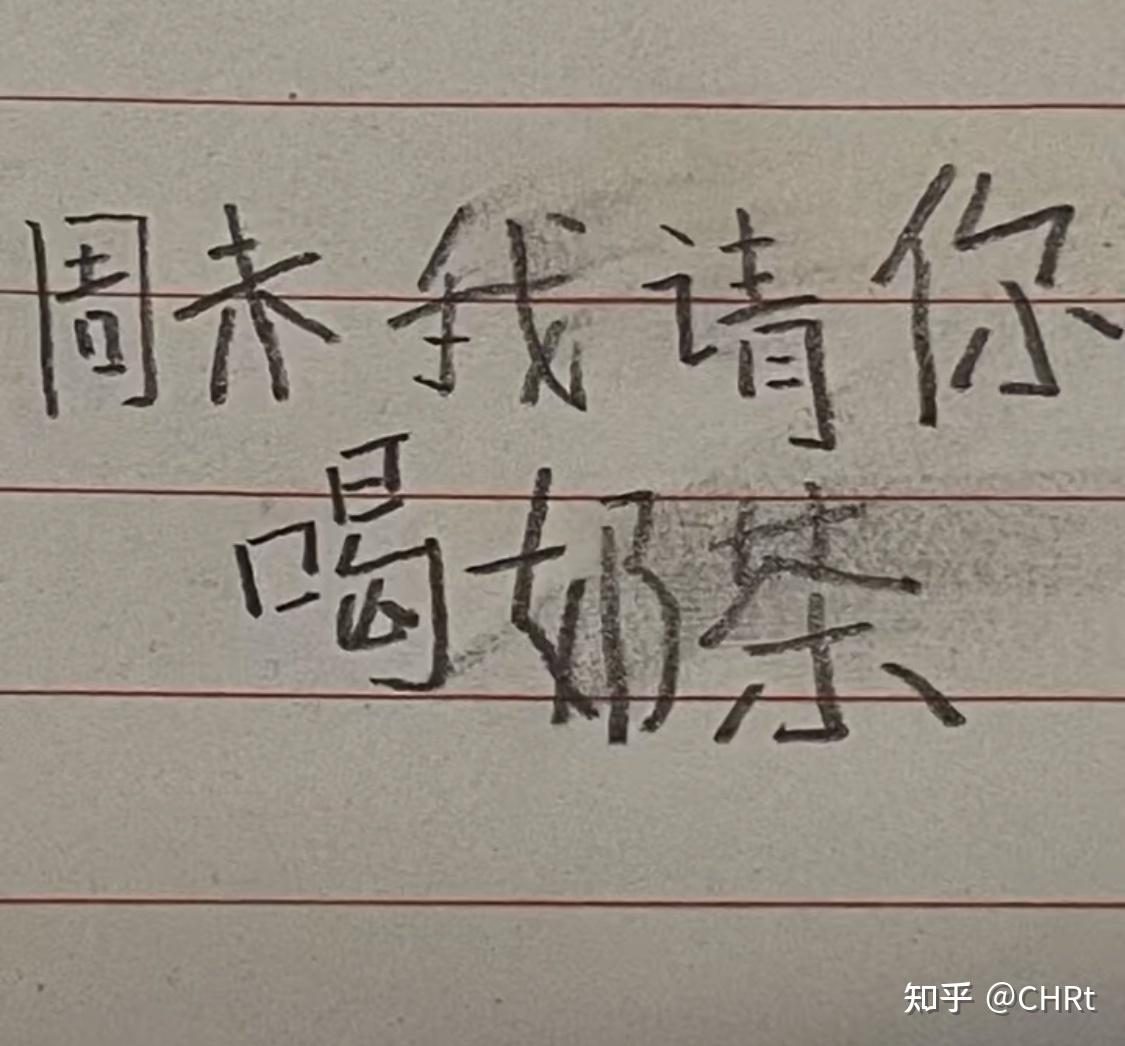 周末我请你
喝奶茶
知乎 @CHRt